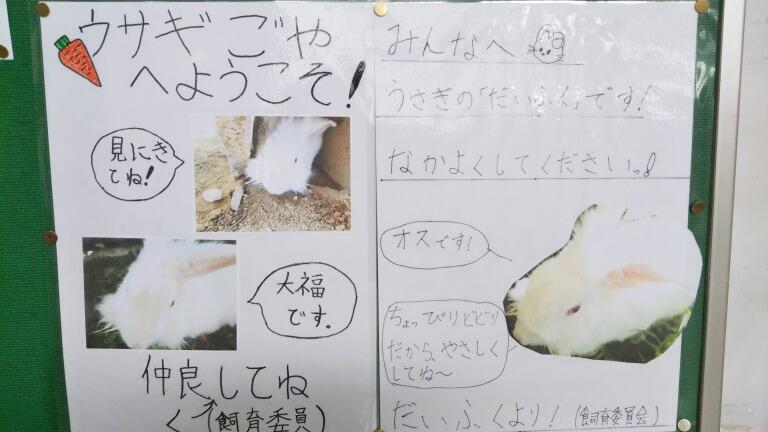 ウサギごや
へようこそ!
見にき
てね!
大福
です。
仲良してね
く
(飼育委員)
みんなへ
うさぎの「だいふく」です!
なかよくしてくださいっ!
オスです!
ちょっぴりどどり
だから、やさしく
してね〜
だいふくより! (飼育委員会)